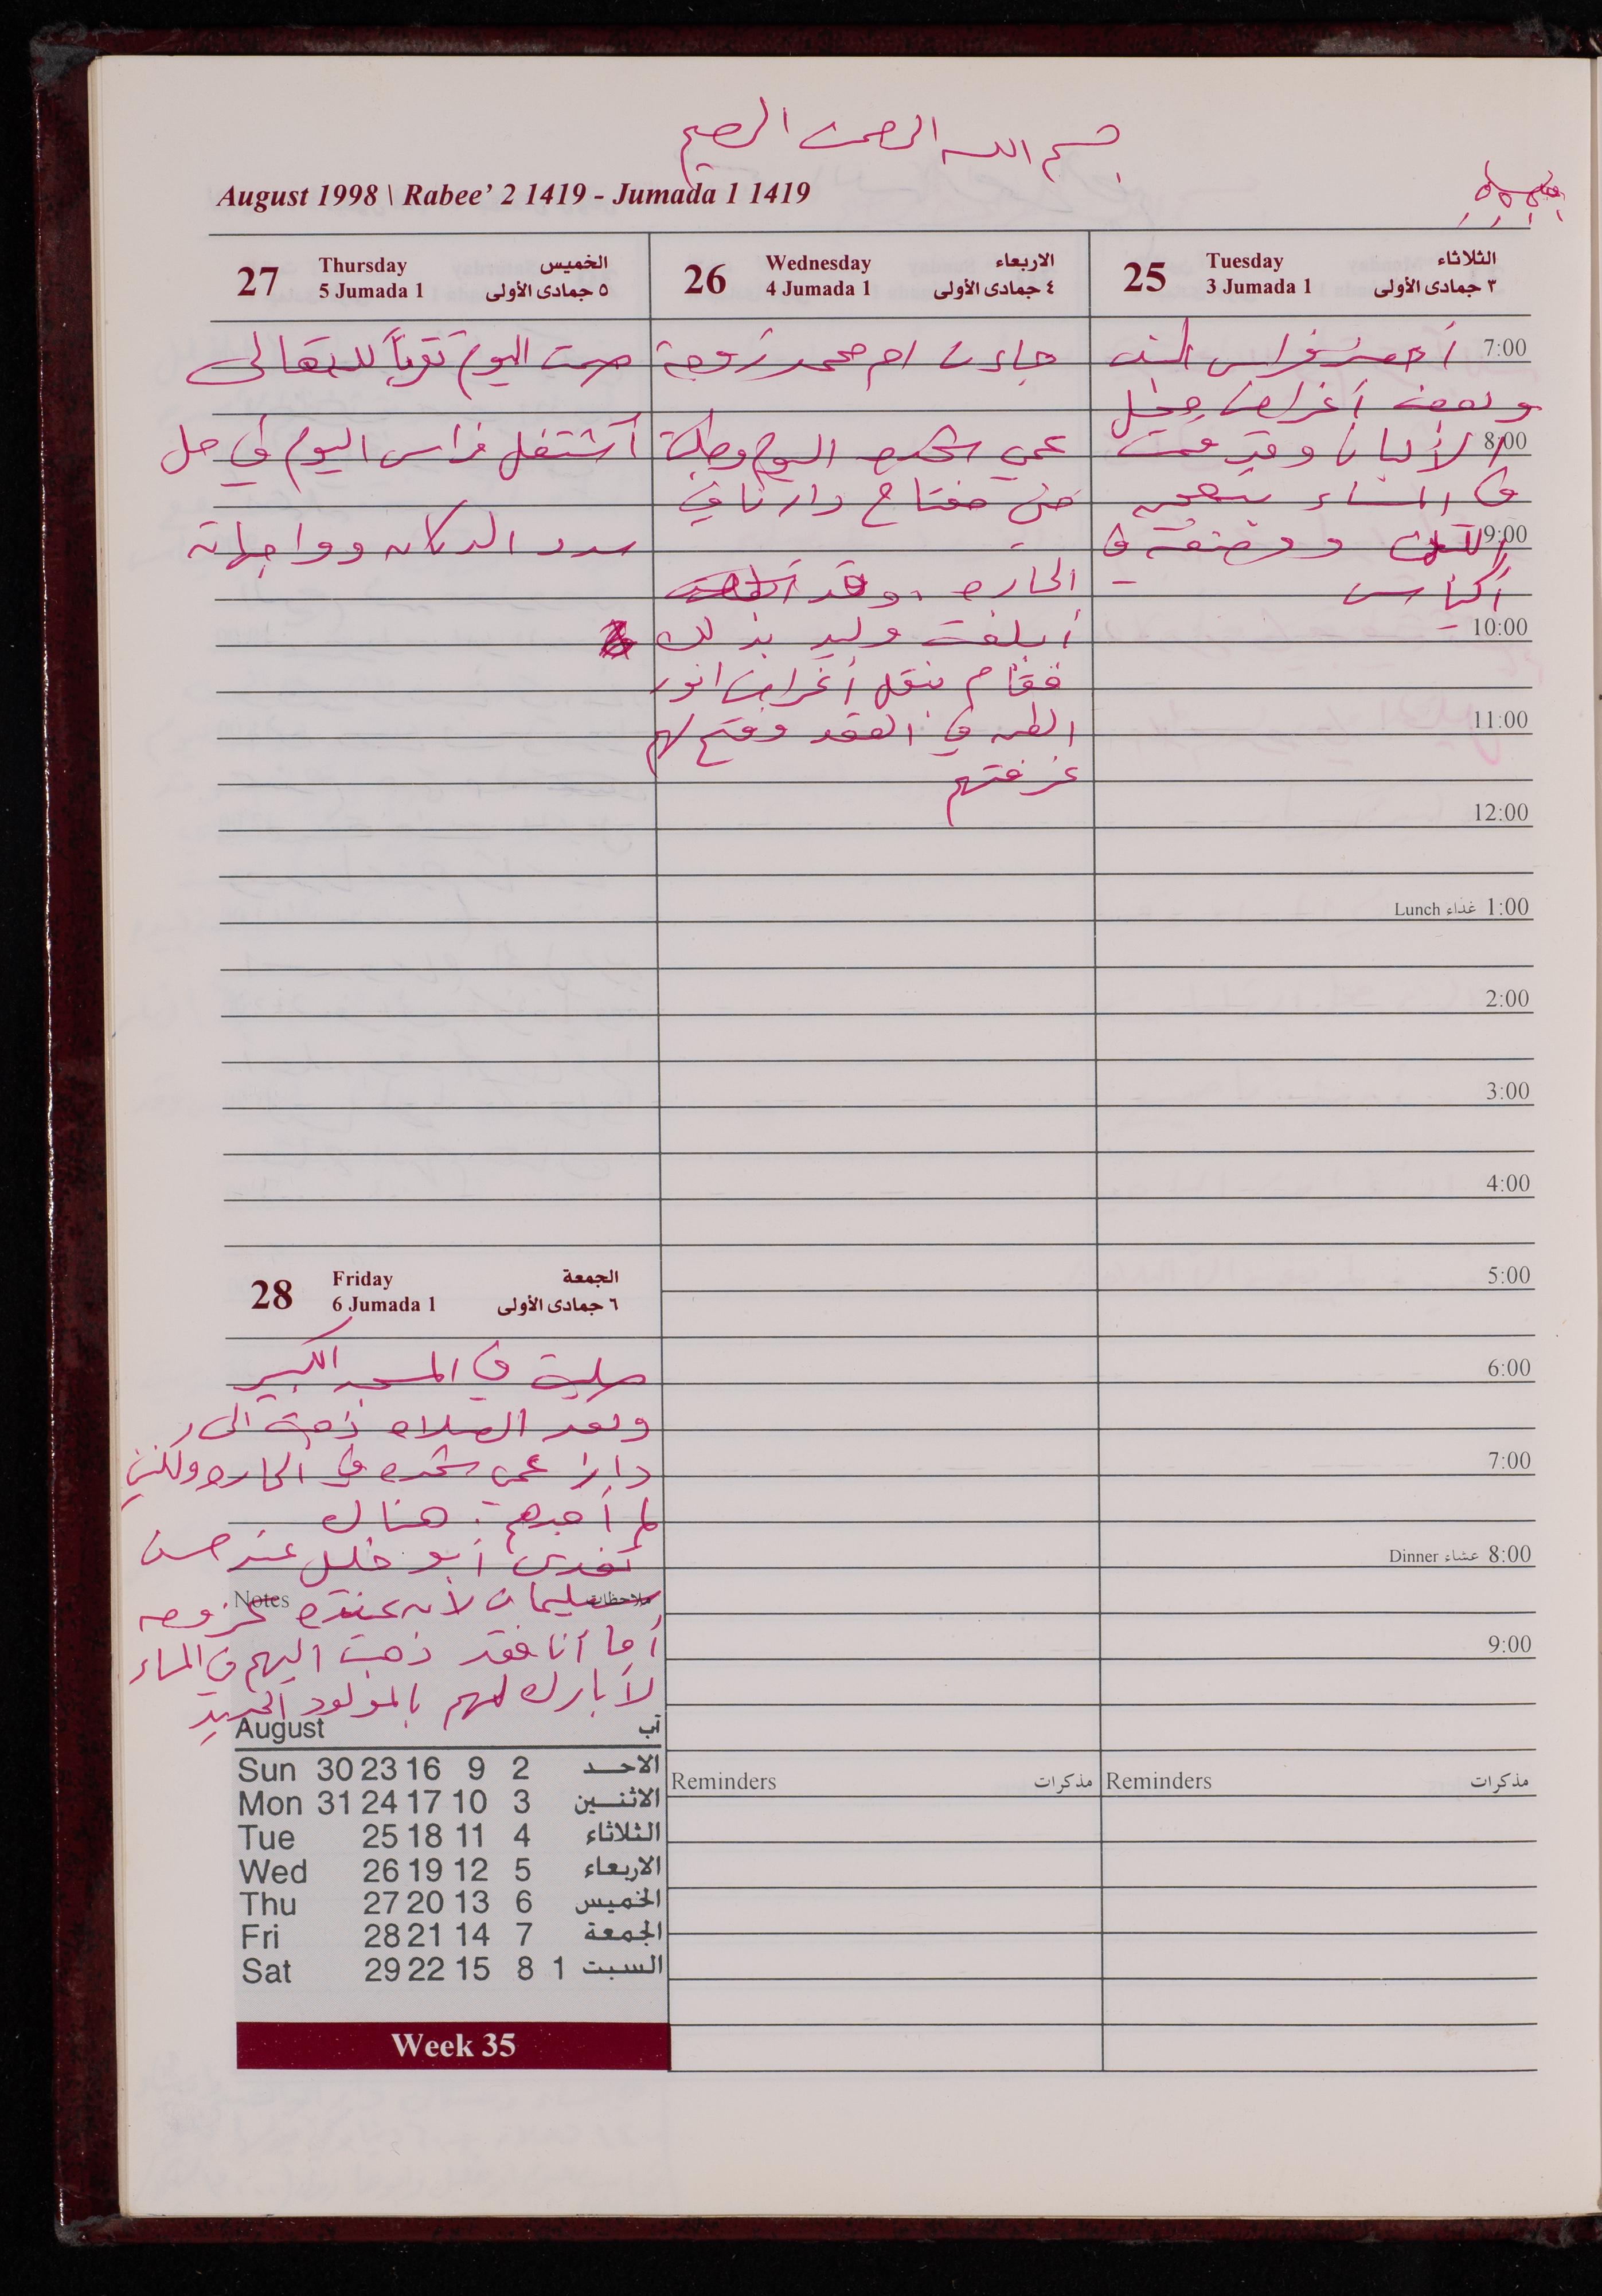 بسم الله الرحمن الرحيم
August 1998 \ Rabee' 2 1419 - Jumada 1 1419
25 Tuesday الثلاثاء
3 Jumada 1 ٣ جمادى الأولى
7:00 أحضر فراس اللبن
وبعض أغراض محل
8:00 الألبان وقد قمت
في المساء بتعبئة
9:00 اللبن ووضعته في
أكياس
10:00
11:00
12:00
Lunch غداء 1:00
2:00
3:00
4:00
5:00
6:00
7:00
Dinner عشاء 8:00
9:00
Reminders مذكرات
26 Wednesday الاربعاء
4 Jumada 1 ٤ جمادى الأولى
جاءت ام محمد زوجة
عمي شحده اليوم وطلبت
مني مفتاح دارنا في
الحاره . وقد
أبلغت وليد بذلك
فقام بنقل أغراض انور
الطه في العقد وفتح لهم
غرفتهم
Reminders مذكرات
27 Thursday الخميس
5 Jumada 1 ٥ جمادى الأولى
صمت اليوم تقرباً لله تعالى
أشتغل فراس اليوم في حل
سدد الدكانه وواجهاته
28 Friday الجمعة
6 Jumada 1 ٦ جمادى الأولى
صليت في المسجد الكبير
وبعد الصلاه ذهبت الى
دار عمي شحده في الحاره ولكنني
لم أجدهم هناك
تغدى أبو خليل عند حسن
سليمان لأنه عنده عزومه
أما أنا فقد ذهبت اليهم في المساء
لأبارك لهم بالمولود الجديد
Notes ملاحظات
August آب
Sun 30 23 16 9 2 الاحد
Mon 31 24 17 10 3 الاثنين
Tue 25 18 11 4 الثلاثاء
Wed 26 19 12 5 الاربعاء
Thu 27 20 13 6 الخميس
Fri 28 21 14 7 الجمعة
Sat 29 22 15 8 1 السبت
Week 35